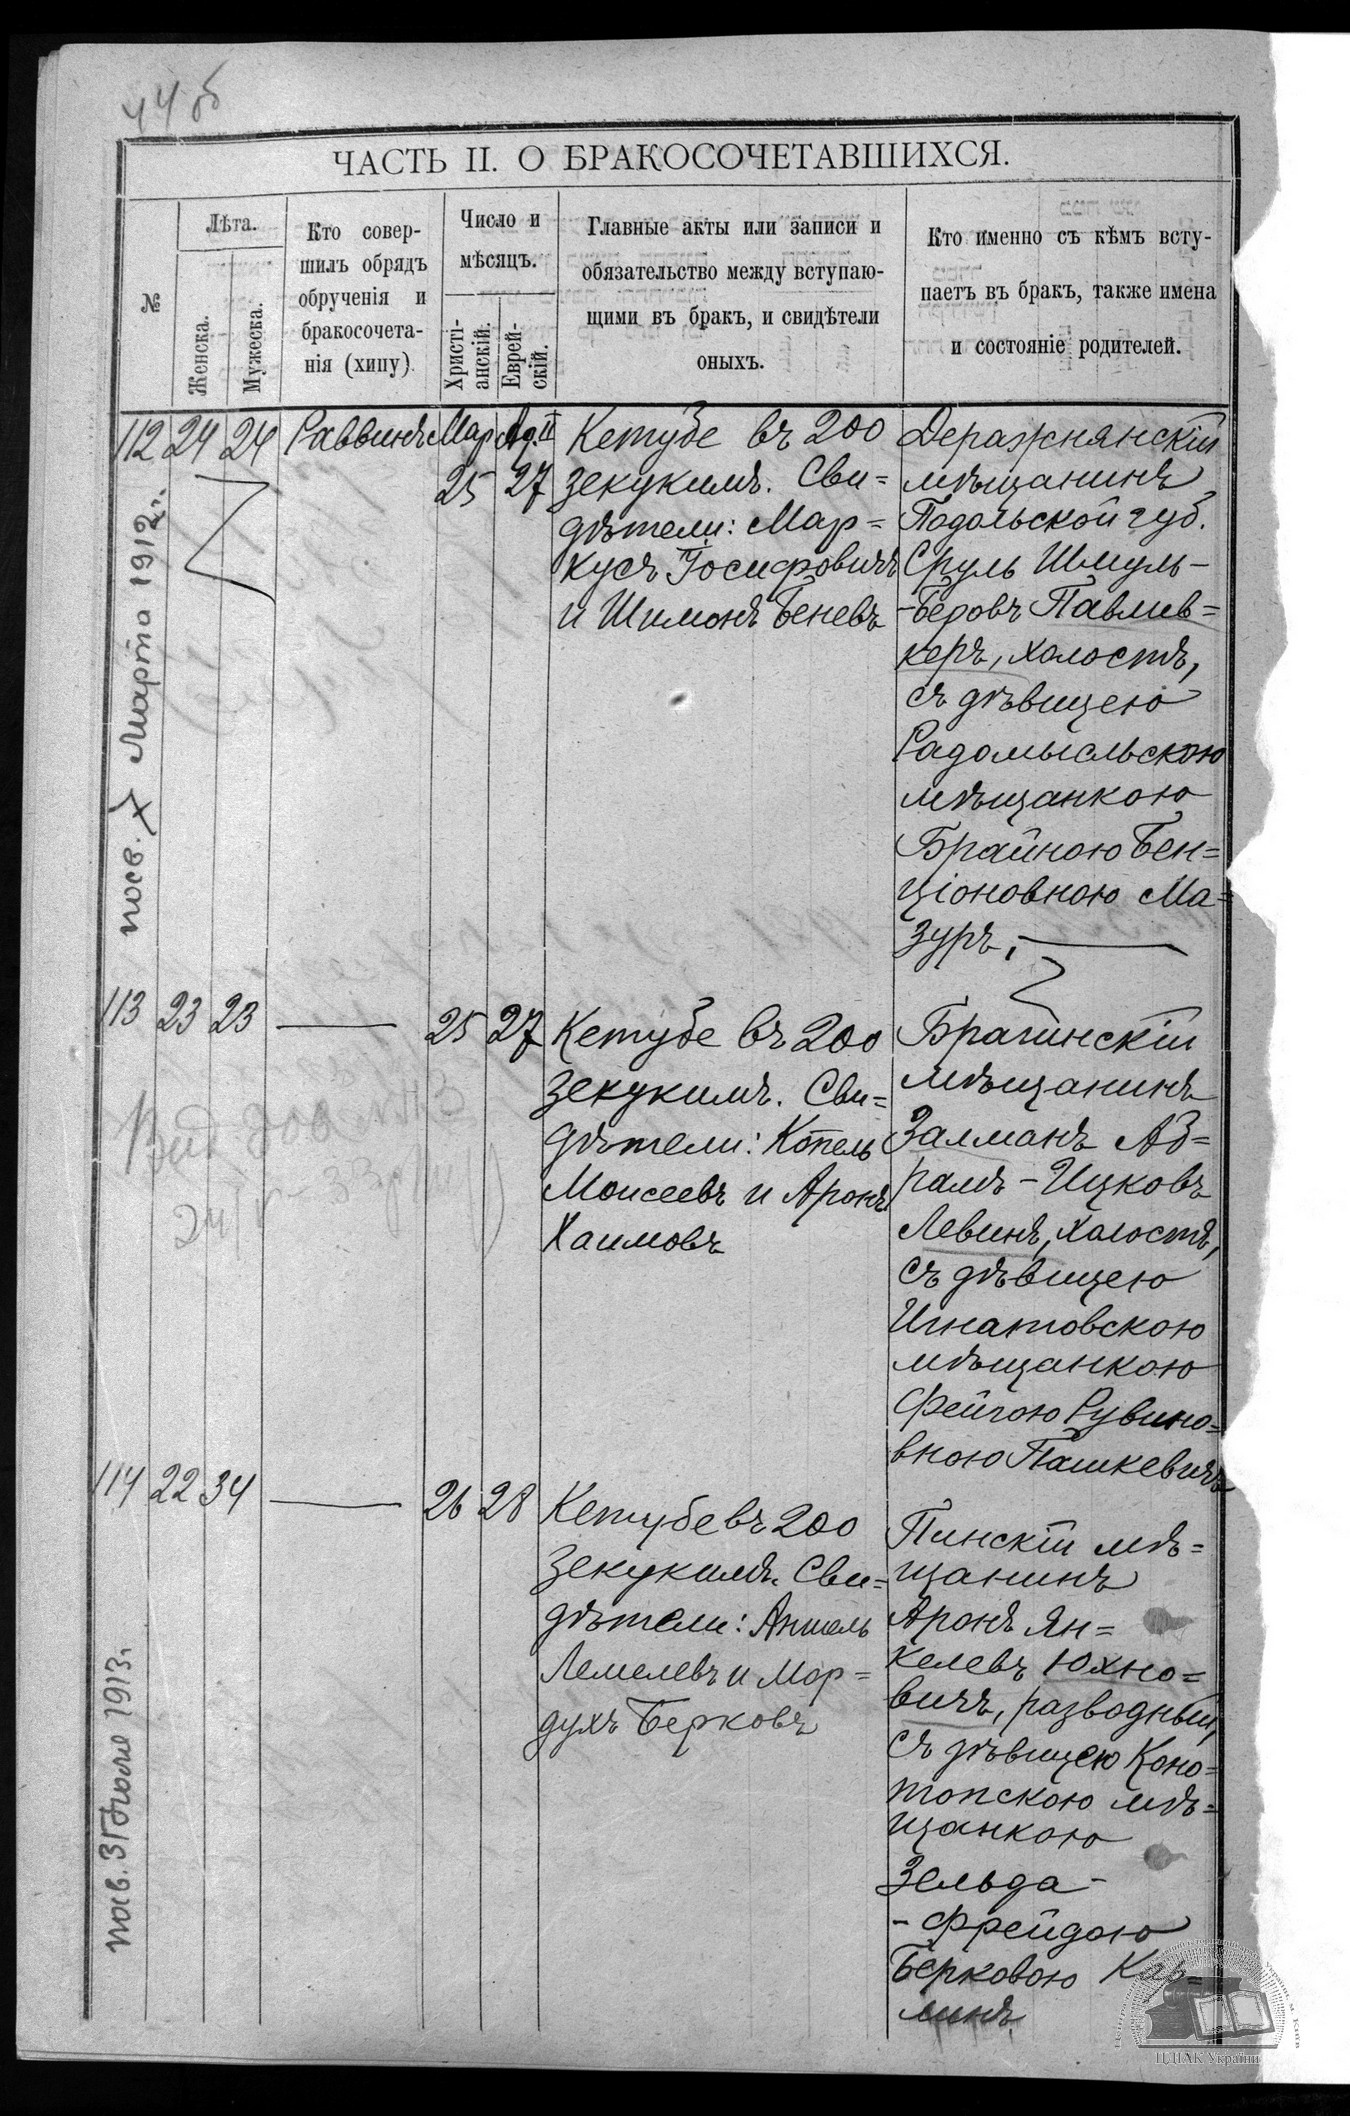 44 об
ЧАСТЬ II. О БРАКОСОЧЕТАВШИХСЯ.
№
Лѣта.
Женска.
Мужеска.
Кто совер-
шилъ обрядъ
обрученія и
бракосочета-
нія (хипу).
Число и
мѣсяцъ.
Христі-
анскій.
Еврей-
скій.
Главные акты или записи и
обязательство между вступаю-
щими въ бракъ, и свидѣтели
оныхъ.
Кто именно съ кѣмъ всту-
паетъ въ бракъ, также имена
и состояніе родителей.
112 24 24 Раввинъ Мар. Ад. II
25 27
Кетубе въ 200
зекукимъ. Сви=
дѣтели: Мар=
кусъ Іосифовичъ
и Шимонъ Беневъ
Деражнянскій
мѣщанинъ
Подольской губ.
Сруль Шмуль-
-Беровъ Павлив=
керъ, холостъ,
съ дѣвицею
Радомысльскою
мѣщанкою
Брайною Бен=
ціоновною Ма=
зуръ.
посв. 7 Марта 1912 г.
113 23 23 25 27
Кетубе въ 200
зекукимъ. Сви=
дѣтели: Копель
Моисеевъ и Аронъ
Хаимовъ
Брагинскій
мѣщанинъ
Залманъ Аб=
рамъ-Ицковъ
Левинъ, холостъ,
съ дѣвицею
Игнатовскою
мѣщанкою
Фейгою Рувино=
вною Пашкевичъ
114 22 34 26 28
Кетубе въ 200
зекукимъ. Сви=
дѣтели: Аншель
Лемелевъ и Мор=
духъ Берковъ
Пинскій мѣ=
щанинъ
Аронъ Ян=
келевъ Юхно=
вичъ, разводный,
съ дѣвицею Коно=
топскою мѣ=
щанкою
Зельда-
-Фрейдою
Берковою
посв. 31 Іюля 1913 г.
ЦДІАК України